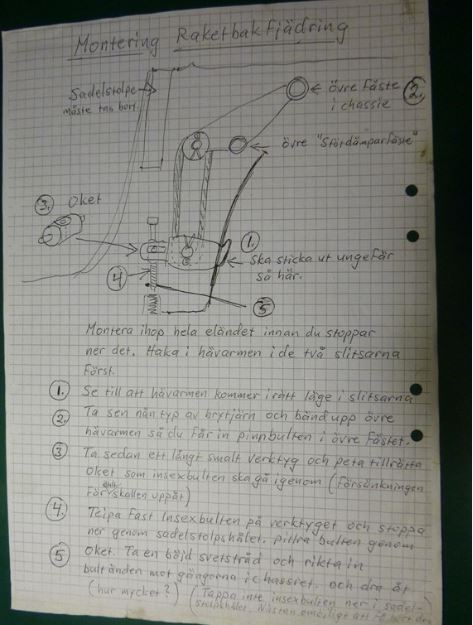 Montering Raketbakfjädring
Sadelstolpe
måste tas bort.
övre fäste
i chassie
2.
övre "Stördämparfäste"
3. Oket
1.
Ska sticka ut ungefär
så här.
4
5
Montera ihop hela eländet innan du stoppar
ner det. Haka i hävarmen i de två slitsarna
först.
1. Se till att hävarmen kommer i rätt läge i slitsarna
2. Ta sen nån typ av brytjärn och bänd upp övre
hävarmen så du får in pinnbulten i övre fästet.
3 Ta sedan ett långt smalt verktyg och peta tillrätta
oket som insexbulten ska gå igenom (Försänkningen
för skallen uppåt)
4. Tejpa fast Insexbulten på verktyget och stoppa
ner genom sadelstolpshålet. pilla bulten genom
5 oket. Ta en böjd svetstråd och rikta in
bultänden mot gängorna i chassiet. och dra åt
(hur mycket?) (Tappa inte insexbulten ner i sadel-
stolpshålet. Nästan omöjligt att få bort den